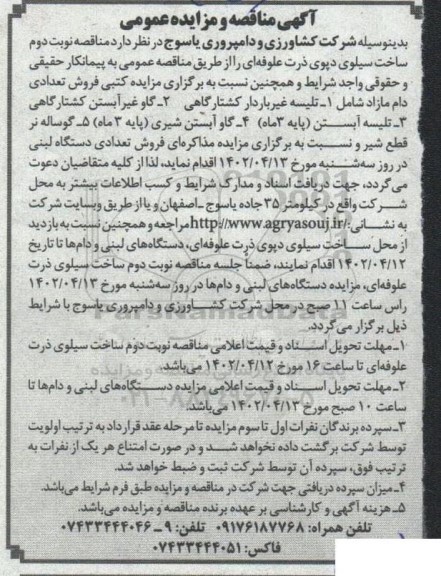 آگهی مناقصه و مزایده عمومی
بدینوسیله شرکت کشاورزی و دامپروری یاسوج در نظر دارد مناقصه نوبت دوم
ساخت سیلوی دپوی ذرت علوفه‌ای را از طریق مناقصه عمومی به پیمانکار حقیقی
و حقوقی واجد شرایط و همچنین نسبت به برگزاری مزایده کتبی فروش تعدادی
دام مازاد شامل ۱-تلیسه غیرباردار کشتارگاهی ۲-گاو غیرآبستن کشتارگاهی
۳-تلیسه آبستن (پایه ۳ماه) ۴-گاو آبستن شیری (پایه ۳ ماه) ۵-گوساله نر
قطع شیر و نسبت به برگزاری مزایده مذاکره‌ای فروش تعدادی دستگاه لبنی
در روز سه‌شنبه مورخ ۱۴۰۲/۰۴/۱۳ اقدام نماید، لذا از کلیه متقاضیان دعوت
می گردد، جهت دریافت اسناد و مدارک شرایط و کسب اطلاعات بیشتر به محل
شرکت واقع در کیلومتر ۳۵ جاده یاسوج -اصفهان و یا از طریق وبسایت شرکت
به نشانی: http://www.agryasouj.ir/ مراجعه و همچنین نسبت به بازدید
از محل ساخت سیلوی دپوی ذرت علوفه‌ای، دستگاه‌های لبنی و دام‌ها تا تاریخ
۱۴۰۲/۰۴/۱۲ اقدام نمایند، ضمناً جلسه مناقصه نوبت دوم ساخت سیلوی ذرت
علوفه‌ای، مزایده دستگاه‌های لبنی و دام‌ها در روز سه‌شنبه مورخ ۱۴۰۲/۰۴/۱۳
راس ساعت ۱۱ صبح در محل شرکت کشاورزی و دامپروری یاسوج با شرایط
ذیل برگزار می‌گردد.
۱-مهلت تحویل اسناد و قیمت اعلامی مناقصه نوبت دوم ساخت سیلوی ذرت
علوفه‌ای تا ساعت ۱۶ مورخ ۱۴۰۲/۰۴/۱۲ می‌باشد.
۲-مهلت تحویل اسناد و قیمت اعلامی مزایده دستگاه‌های لبنی و دام‌ها تا
ساعت ۱۰ صبح مورخ ۱۴۰۲/۰۴/۱۳ می‌باشد.
۳-سپرده برندگان نفرات اول تا سوم مزایده تا مرحله عقد قرارداد به ترتیب اولویت
توسط شرکت برگشت داده نخواهد شد و در صورت امتناع هر یک از نفرات به
ترتیب فوق، سپرده آن توسط شرکت ثبت و ضبط خواهد شد.
۴-میزان سپرده دریافتی جهت شرکت در مناقصه و مزایده طبق فرم شرایط می‌باشد.
۵-هزینه آگهی و کارشناسی بر عهده برنده مناقصه و مزایده می‌باشد.
تلفن همراه: ۰۹۱۷۶۱۸۷۷۶۸ تلفن: ۹-۰۷۴۳۳۴۴۴۰۴۶
فاکس: ۰۷۴۳۳۴۴۴۰۵۱